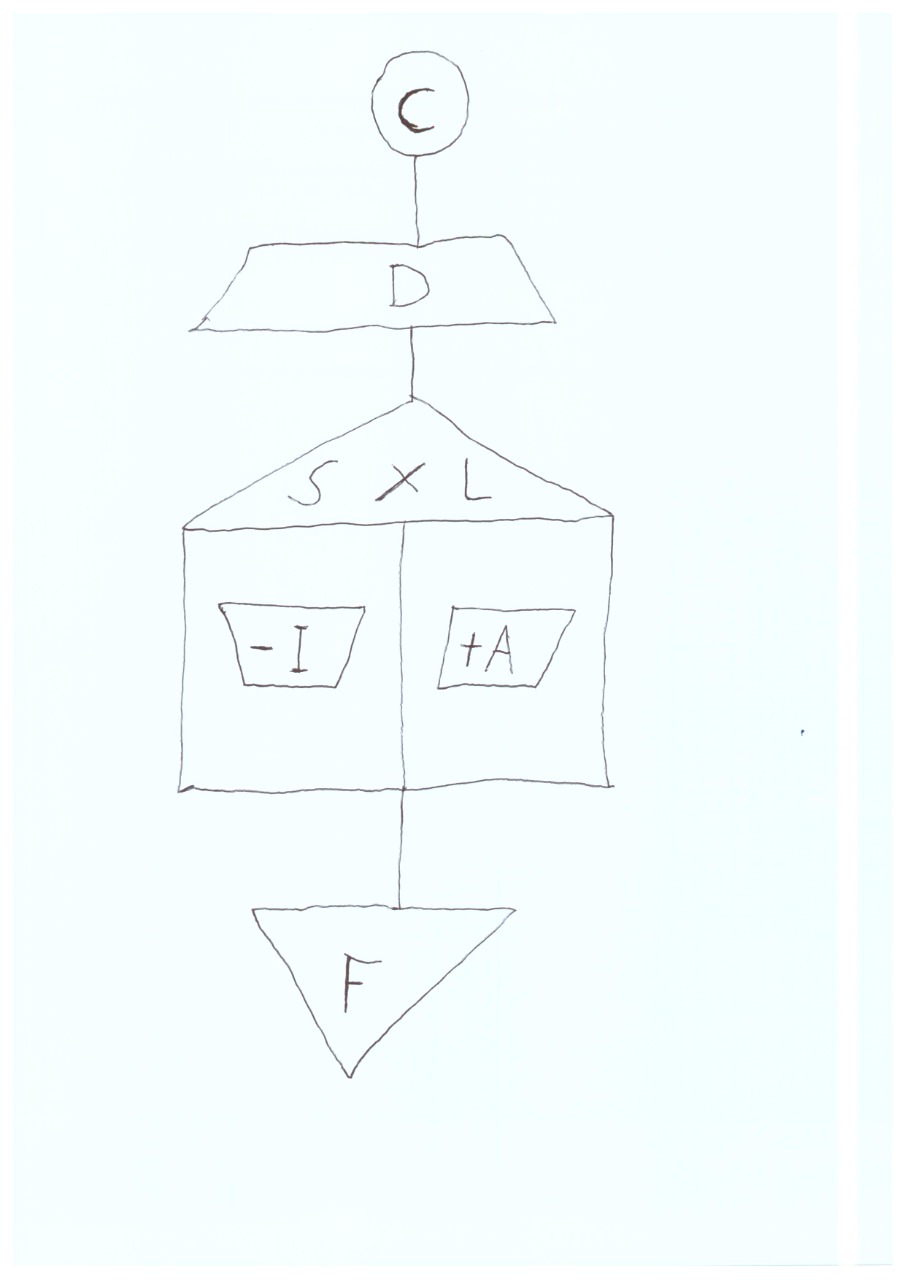 C
D
S X L
-I +A
F